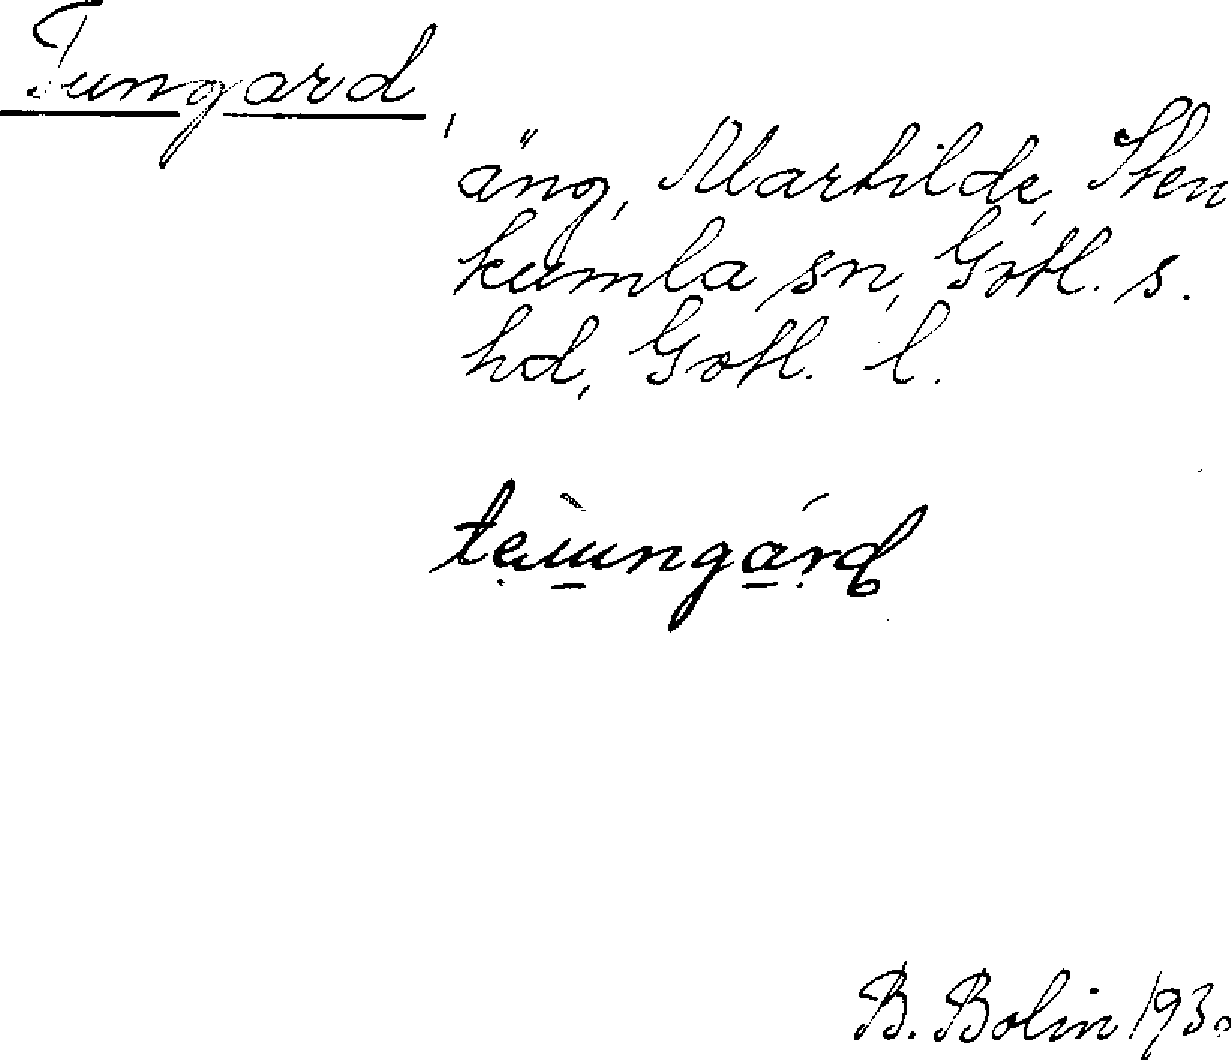 Tungard,
äng, Martilde, Sten
kumla sn, Gotl. s.
hd, Gotl. l.
B. Bolin 1930